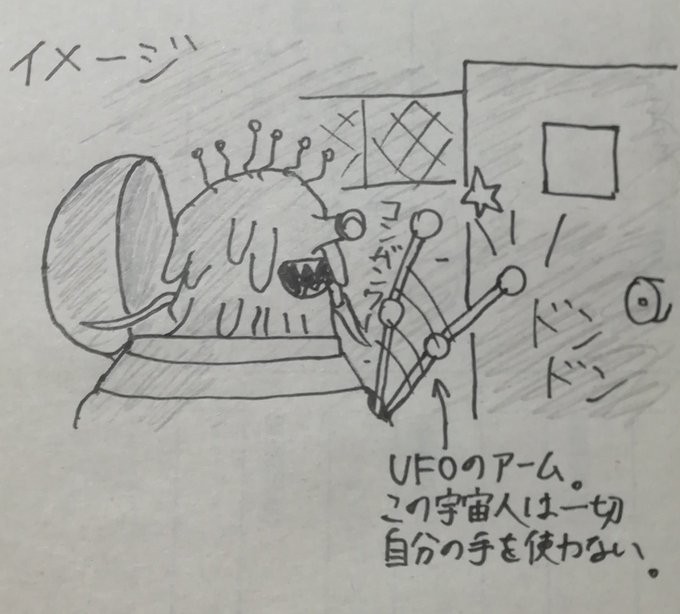 イメージ
ドン
ドン
UFOのアーム。
この宇宙人は一切
自分の手を使わない。